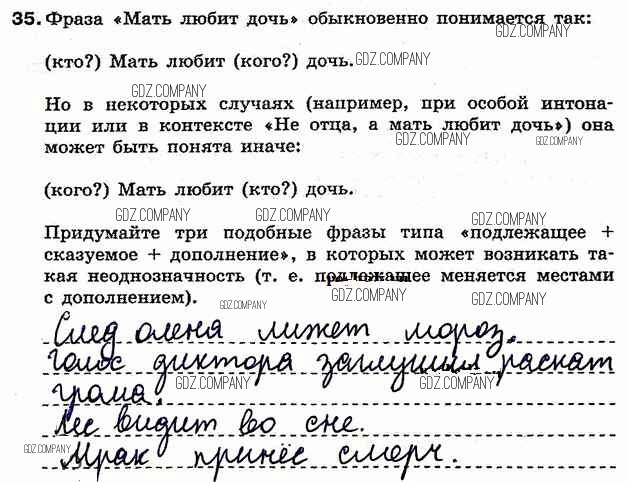 35. Фраза «Мать любит дочь» обыкновенно понимается так:
GDZ.COMPANY
(кто?) Мать любит (кого?) дочь.
GDZ.COMPANY
GDZ.COMPANY
Но в некоторых случаях (например, при особой интона-
ции или в контексте «Не отца, а мать любит дочь») она
GDZ.COMPANY
GDZ.COMPANY
может быть понята иначе:
GDZ.COMPANY
(кого?) Мать любит (кто?) дочь.
GDZ.COMPANY
GDZ.COMPANY
GDZ.COMPANY
Придумайте три подобные фразы типа «подлежащее +
сказуемое + дополнение», в которых может возникать та-
GDZ.COMPANY
кая неоднозначность (т. е. подлежащее меняется местами
с дополнением).
GDZ.COMPANY
GDZ.COMPANY
GDZ.COMPANY
След оленя лижет мороз.
Голос диктора заглушил раскат
GDZ.COMPANY
GDZ.COMPANY
грома.
Лес видит во сне.
GDZ.COMPANY
Мрак принёс смерч.
GDZ.COMPANY